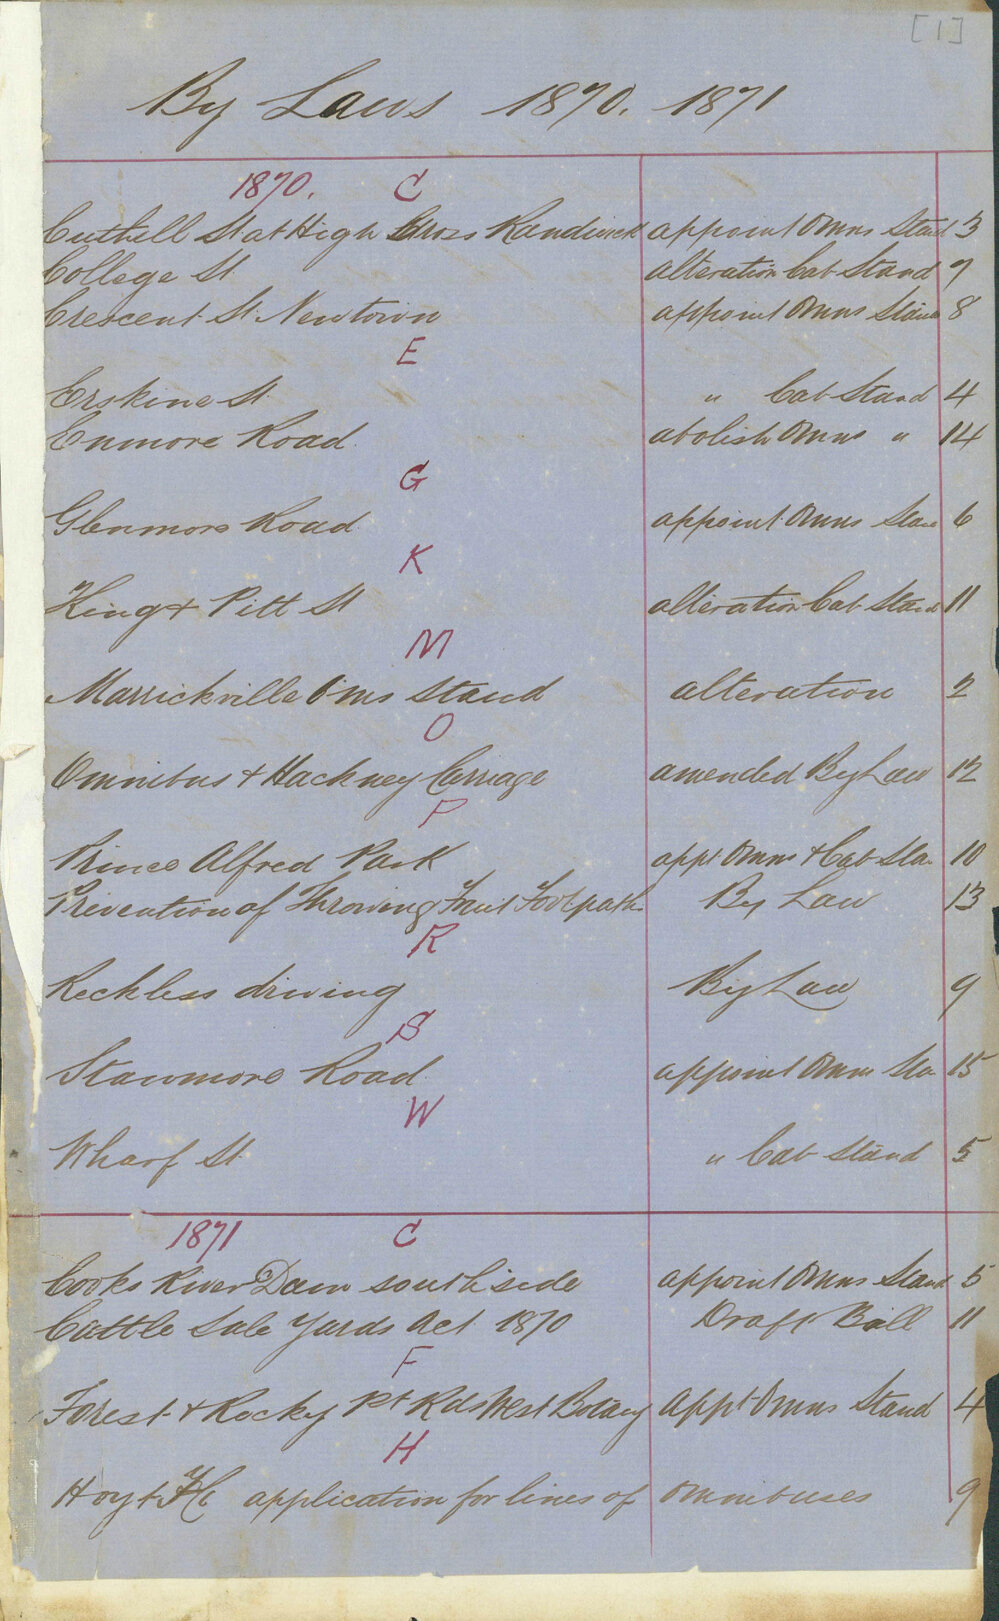 [1]
By Laws 1870. 1871
1870. C
Cuthill St at High Cross Randwick appoint Omns Stand 3
College St alteration Cab Stand 7
Crescent St Newtown appoint Omns Stand 8
E
Erskine St. " Cab Stand 4
Enmore Road. abolish Omns " 14
G
Glenmore Road appoint Omns Stan 6
K
King & Pitt St alteration Cab Stand 11
M
Marrickville Omns Stand alteration 2
O
Omnibus & Hackney Carriage amended By Law 12
P
Prince Alfred Park appt Omns & Cab Sta 10
Prevention of Throwing Fruit Footpath By Law 13
R
Reckless driving By Law 9
S
Stanmore Road appoint Omns Sta 15
W
Wharf St " Cab Stand 5
1871 C
Cooks River Dam south side appoint Omns Stand 5
Cattle Sale Yards Act 1870 Draft Bill 11
F
Forest & Rocky Pt Rds West Botany Appt Omns Stand 4
H
Hoyt application for lines of omnibuses 9